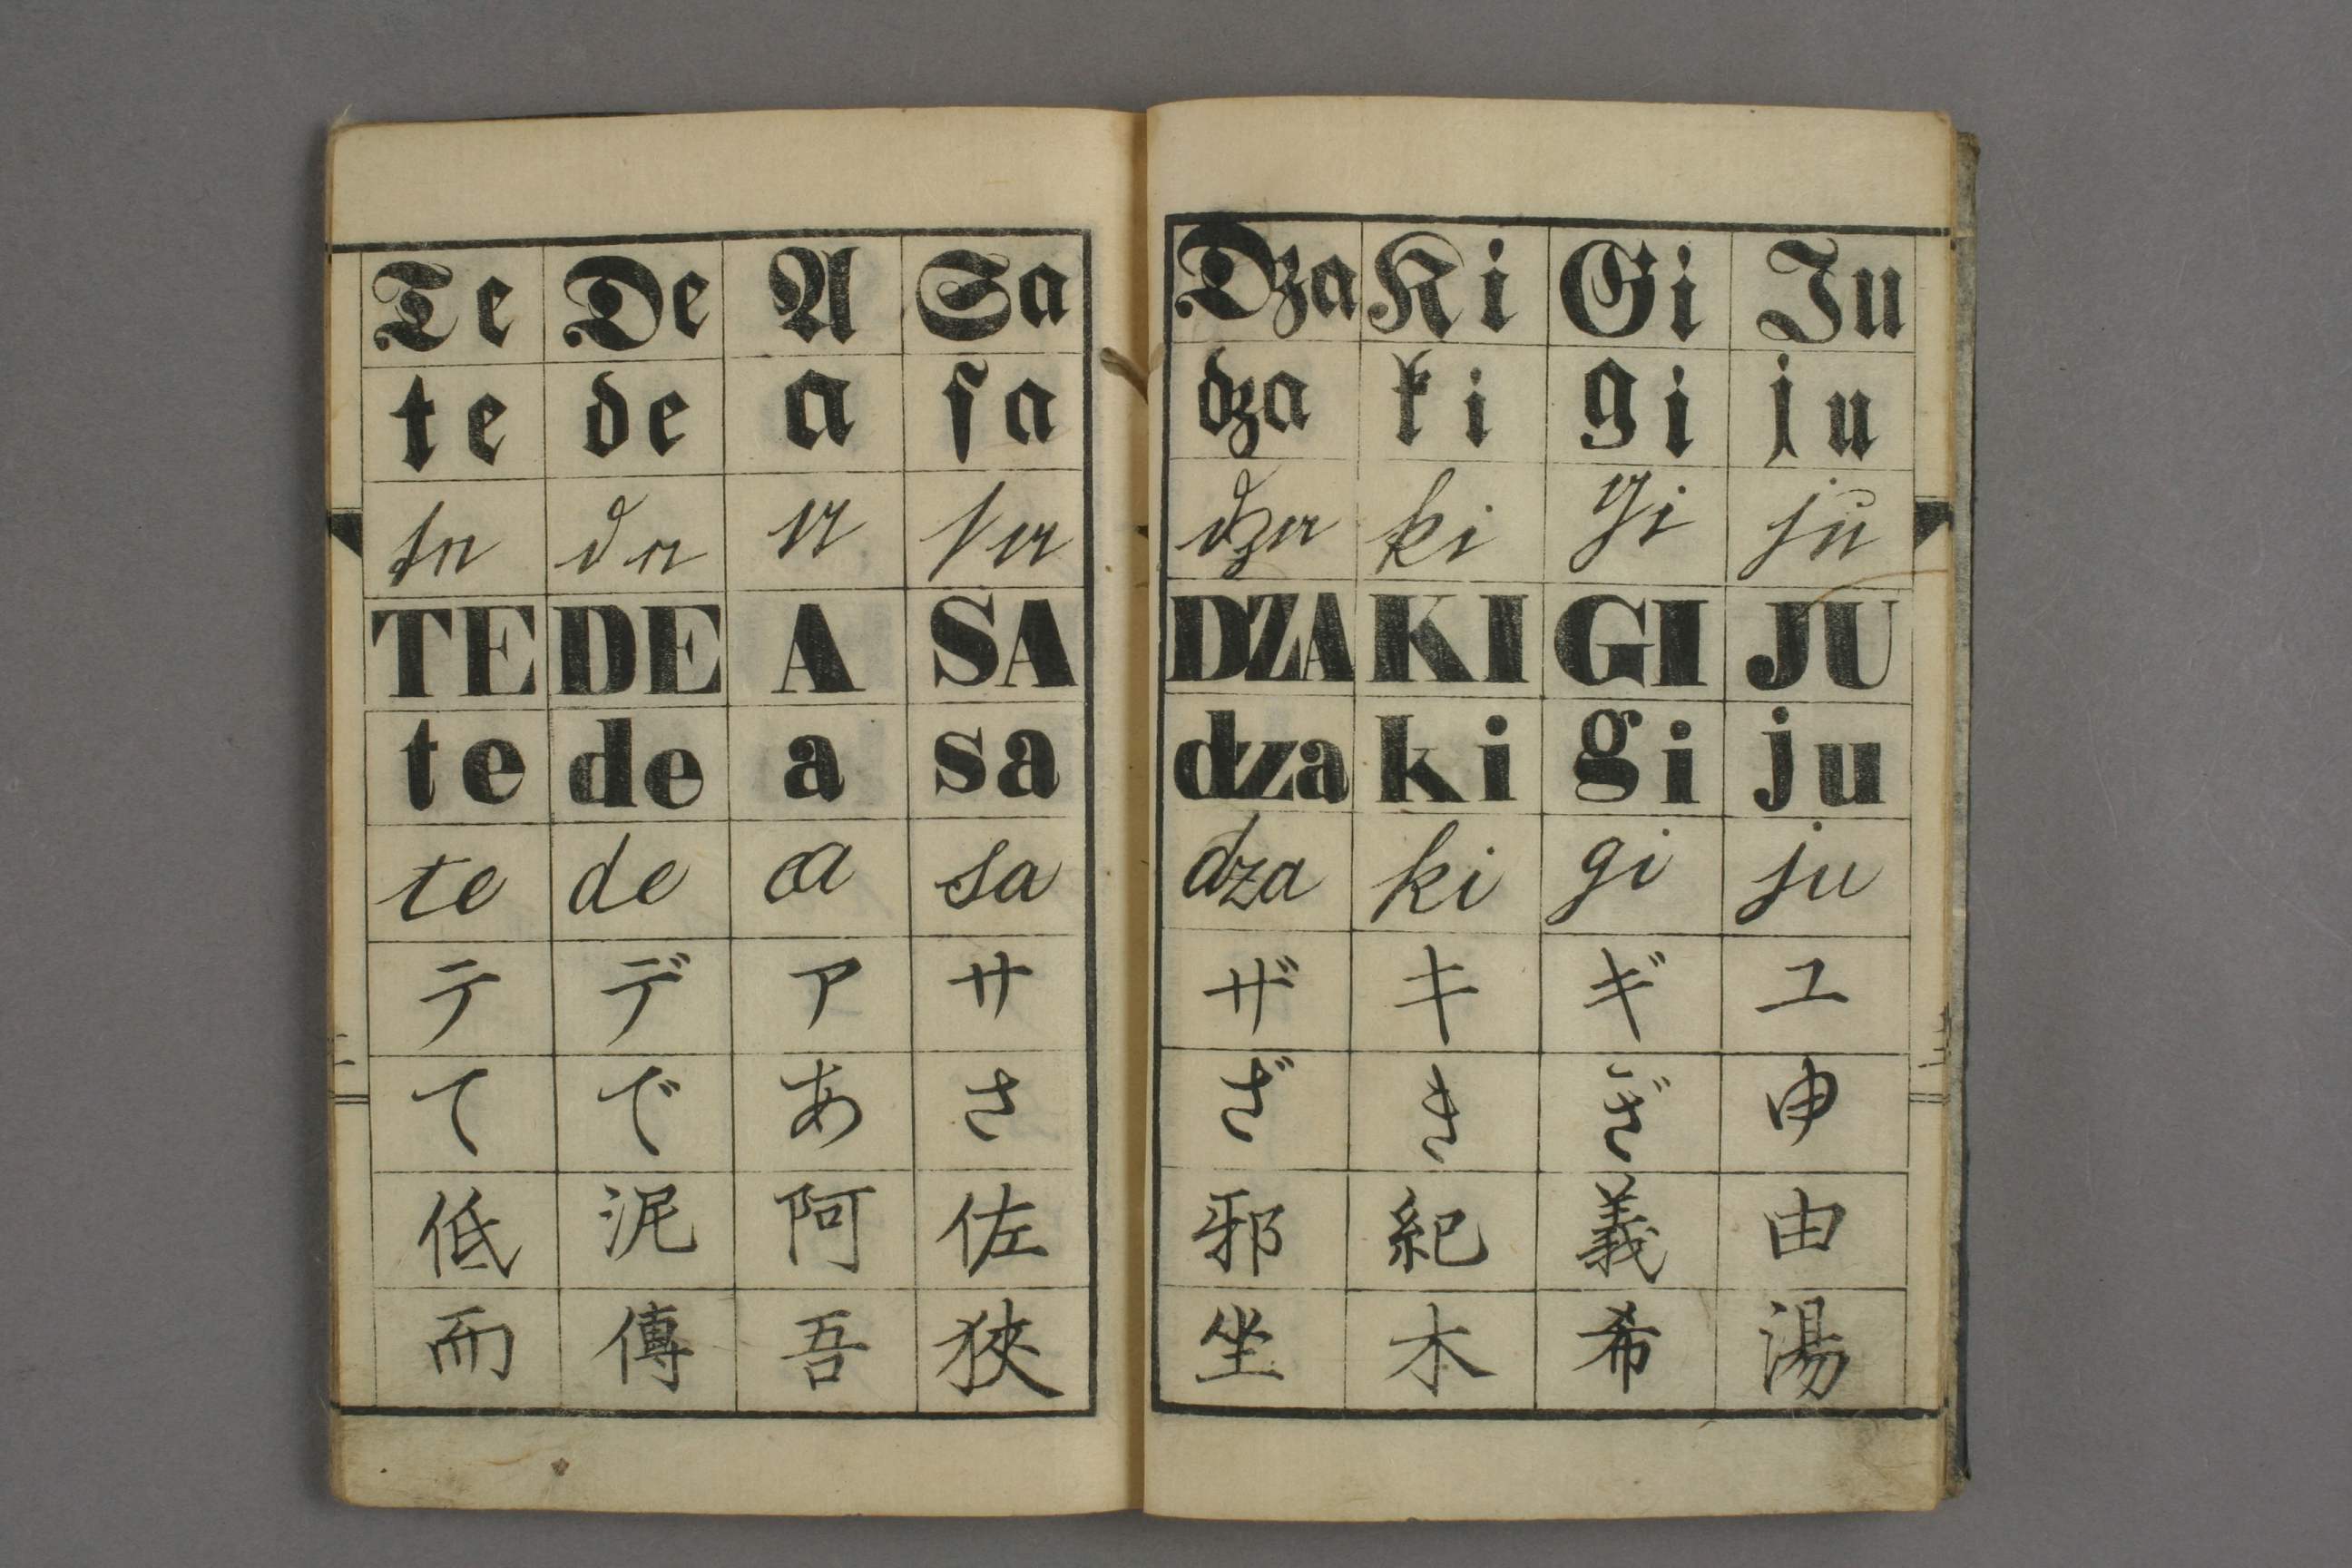 Te De A Sa Dza Ki Gi Ju
te de a ſa dza ki gi ju
te de a ſa dza ki gi ju
TE DE A SA DZA KI GI JU
te de a sa dza ki gi ju
te de a sa dza ki gi ju
テ デ ア サ ザ キ ギ ユ
て で あ さ ざ き ぎ 申
低 泥 阿 佐 邪 紀 義 由
而 傳 吾 狹 坐 木 希 湯